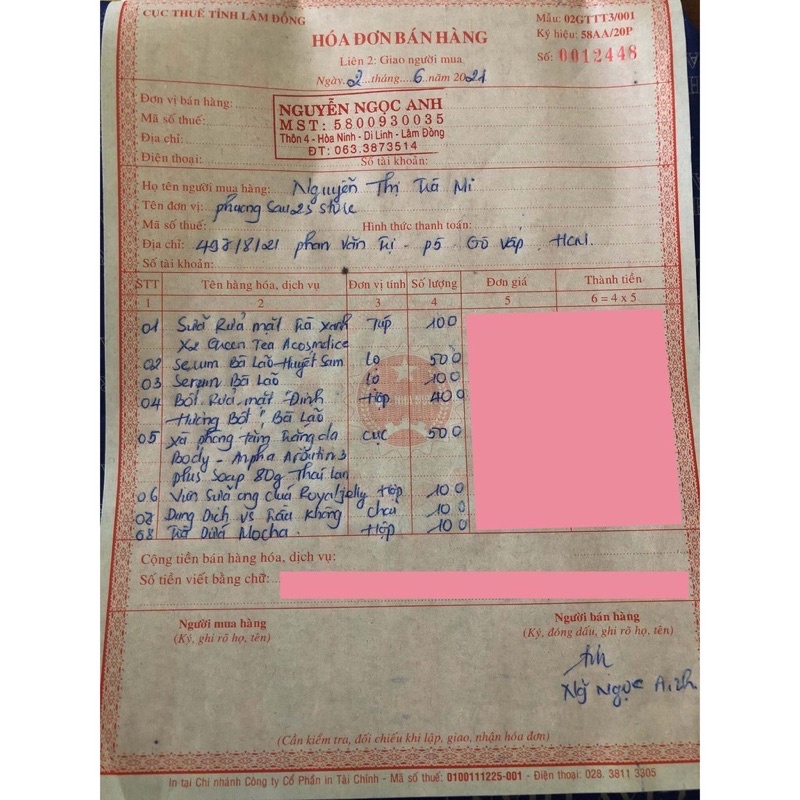 CỤC THUẾ TỈNH LÂM ĐỒNG
Mẫu: 02GTTT3/001
Ký hiệu: 58AA/20P
Số: 0012448
HÓA ĐƠN BÁN HÀNG
Liên 2: Giao người mua
Ngày 2 tháng 6 năm 2021
Đơn vị bán hàng:
Mã số thuế:
Địa chỉ:
Điện thoại: Số tài khoản:
NGUYỄN NGỌC ANH
MST: 5800930035
Thôn 4 - Hòa Ninh - Di Linh - Lâm Đồng
ĐT: 063.3873514
Họ tên người mua hàng: Nguyễn Thị Trà Mi
Tên đơn vị: phuong
Mã số thuế: Hình thức thanh toán:
Địa chỉ: 497/8/21 phan Văn Trị - p5 Gò Vấp HCM.
Số tài khoản:
STT Tên hàng hóa, dịch vụ Đơn vị tính Số lượng Đơn giá Thành tiền
1 2 3 4 5 6 = 4 x 5
01 Sữa Rửa mặt Trà xanh Tuýp 100
X2 Queen Tea Acosmetics
02 Serum Bà Lão Huyết Sâm lọ 500
03 Serum Bà Lão lọ 100
04 Bột Rửa mặt "Đinh Hộp 400
Hương Bột" Bà Lão
05 xà phòng tắm trắng da cục 500
Body - Alpha Arbutin 3
plus Soap 80g Thái Lan
06 Viên Sữa ong chúa Royal jelly Hộp 100
07 Dung Dịch vs Trầu không chai 100
08 Trà Dứa Mocha. Hộp 100
Cộng tiền bán hàng hóa, dịch vụ:
Số tiền viết bằng chữ:
Người mua hàng Người bán hàng
(Ký, ghi rõ họ, tên) (Ký, đóng dấu, ghi rõ họ, tên)
Ng Ngọc Anh
(Cần kiểm tra, đối chiếu khi lập, giao, nhận hóa đơn)
In tại Chi nhánh Công ty Cổ Phần in Tài Chính - Mã số thuế: 0100111225-001 - Điện thoại: 028. 3811 3305